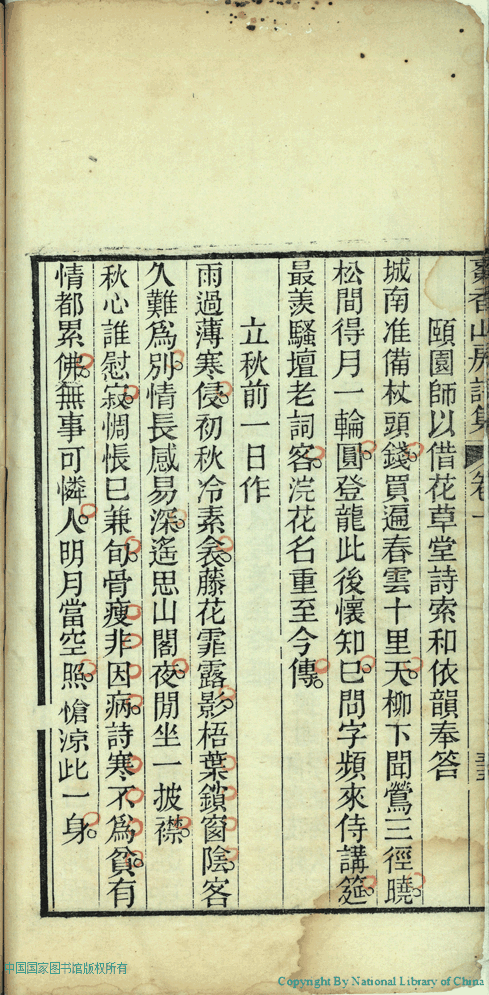 頤園師以借花草堂詩索和依韻奉答
城南准備杖頭錢買遍春雲十里天柳下聞鶯三徑曉
松間得月一輪圓登龍此後懷知己問字頻來侍講筵
最羨騷壇老詞客浣花名重至今傳
立秋前一日作
雨過薄寒侵初秋冷素衾藤花霏露影梧葉鎖窗陰客
久難爲別情長感易深遙思山閣夜閒坐一披襟
秋心誰慰寂惆悵已兼旬骨瘦非因病詩寒不爲貧有
情都累佛無事可憐人明月當空照愴涼此一身
中国国家图书馆版权所有
Copyright By National Library of China